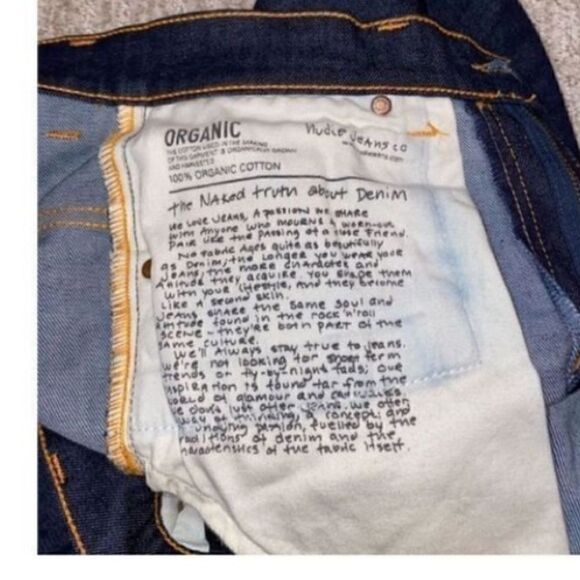 ORGANIC
nudie jeans co
THE COTTON USED IN THE MAKING
OF THIS GARMENT IS ORGANICALLY GROWN
AND HARVESTED
100% ORGANIC COTTON
the Naked truth about Denim
We love jeans, a passion we share
with anyone who mourns a worn-out
pair like the passing of a close friend.
No fabric ages quite as beautifully
as denim; the longer you wear your
jeans, the more character and
attitude they acquire. You shape them
with your lifestyle, and they become
like a second skin.
Jeans share the same soul and
attitude found in the rock'n'roll
scene – they're both part of the
same culture.
We'll always stay true to jeans.
We're not looking for short term
trends or fly-by-night fads; our
inspiration is found far from the
world of glamour and
we don't just offer jeans. We offer
way of thinking, a concept, and
undying passion, fuelled by the
traditions of denim and the
characteristics of the fabric itself.